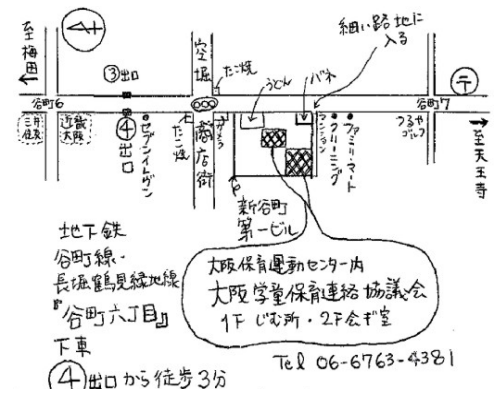 細い路地に
入る
至梅田
③出口
空堀
たこ焼
うどん
パネ
〒
谷町6
谷町7
三井
住友
近畿
大阪
④出口
セブンイレブン
たこ焼
商店街
マンション
クリーニング
ファミリーマート
つるや
ゴルフ
至天王寺
新谷町
第一ビル
地下鉄
谷町線・
長堀鶴見緑地線
『谷町六丁目』
下車
④出口から徒歩3分
大阪保育運動センター内
大阪学童保育連絡協議会
1F じむ所・2F会ぎ室
Tel 06-6763-4381